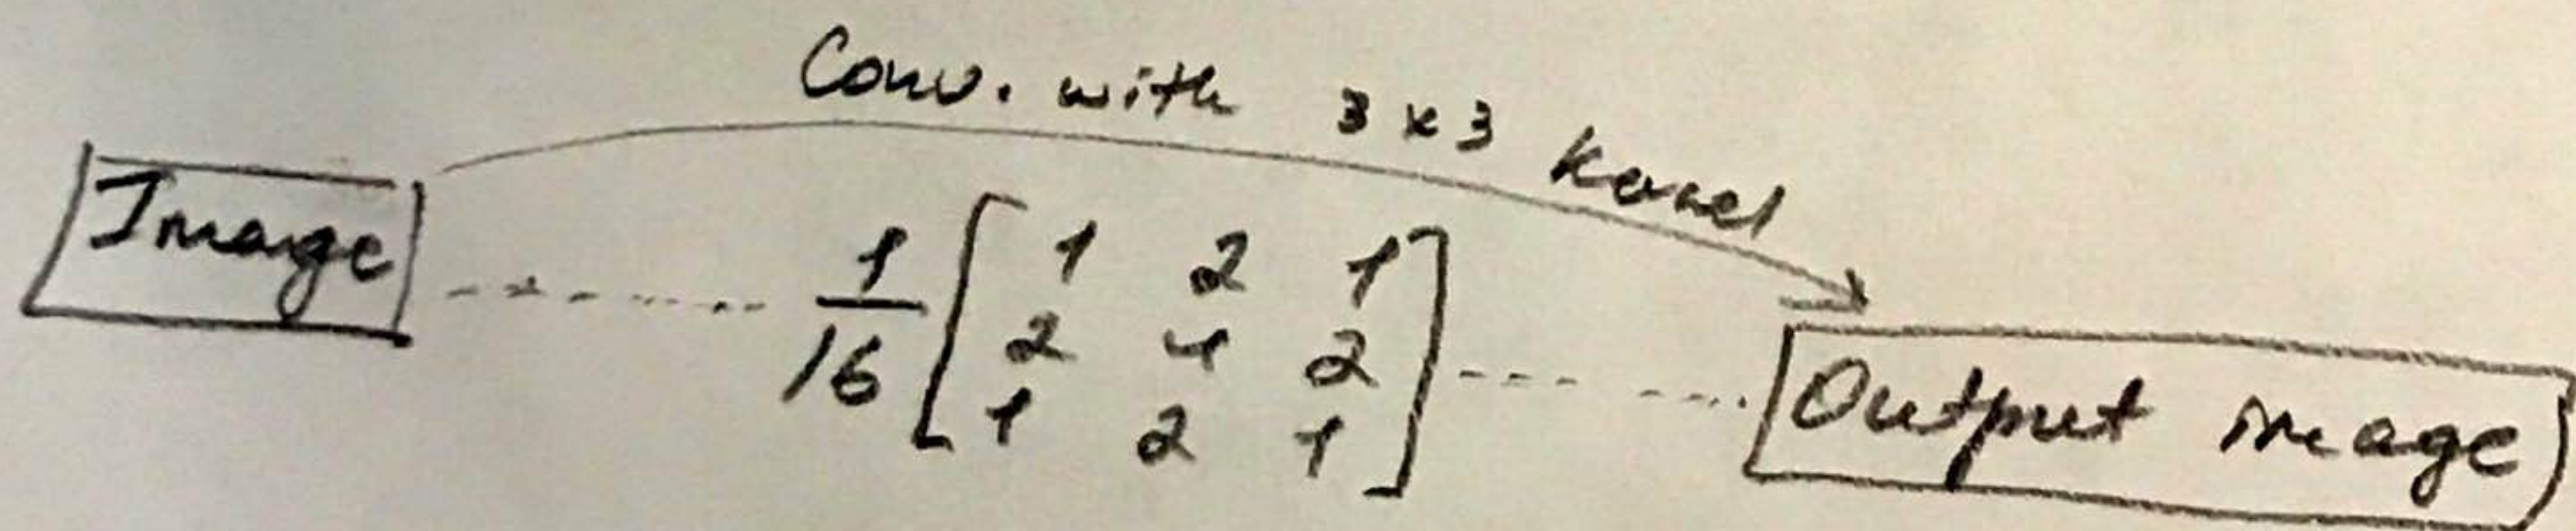 Conv. with 3x3 kernel
Image
1/16 [1 2 1
2 4 2
1 2 1]
Output image